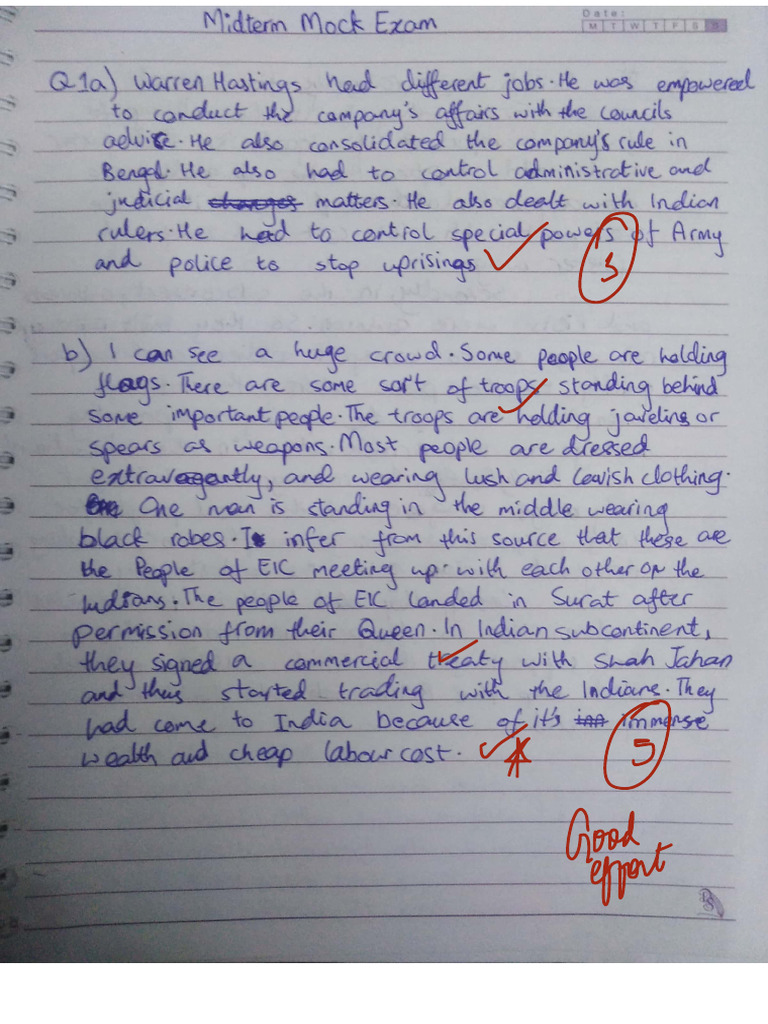 Midterm Mock Exam
Date:
M T W T F S S
Q1a) Warren Hastings had different jobs. He was empowered
to conduct the company's affairs with the councils
advice. He also consolidated the company's rule in
Bengal. He also had to control administrative and
judicial changes matters. He also dealt with Indian
rulers. He had to control special powers of Army
and police to stop uprisings
3
b) I can see a huge crowd. Some people are holding
flags. There are some sort of troops standing behind
some important people. The troops are holding javelins or
spears as weapons. Most people are dressed
extravagantly, and wearing lush and lavish clothing.
One man is standing in the middle wearing
black robes. I infer from this source that these are
the People of EIC meeting up with each other or the
Indians. The people of EIC landed in Surat after
permission from their Queen. In Indian subcontinent,
they signed a commercial treaty with Shah Jahan
and thus started trading with the Indians. They
had come to India because of it's immense
wealth and cheap labour cost.
5
Good
effort